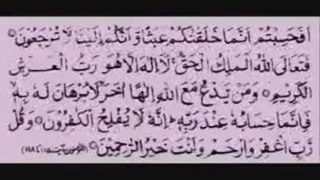 اَفَحَسِبْتُمْ اَنَّمَا خَلَقْنٰكُمْ عَبَثًا وَّاَنَّكُمْ اِلَيْنَا لَا تُرْجَعُوْنَ
فَتَعٰلَى اللّٰهُ الْمَلِكُ الْحَقُّ لَاۤ اِلٰهَ اِلَّا هُوَ رَبُّ الْعَرْشِ
الْكَرِيْمِ وَمَنْ يَّدْعُ مَعَ اللّٰهِ اِلٰهًا اٰخَرَ لَا بُرْهَانَ لَهٗ بِهٖ
فَاِنَّمَا حِسَابُهٗ عِنْدَ رَبِّهٖ اِنَّهٗ لَا يُفْلِحُ الْكٰفِرُوْنَ وَقُلْ
رَّبِّ اغْفِرْ وَارْحَمْ وَاَنْتَ خَيْرُ الرّٰحِمِيْنَ